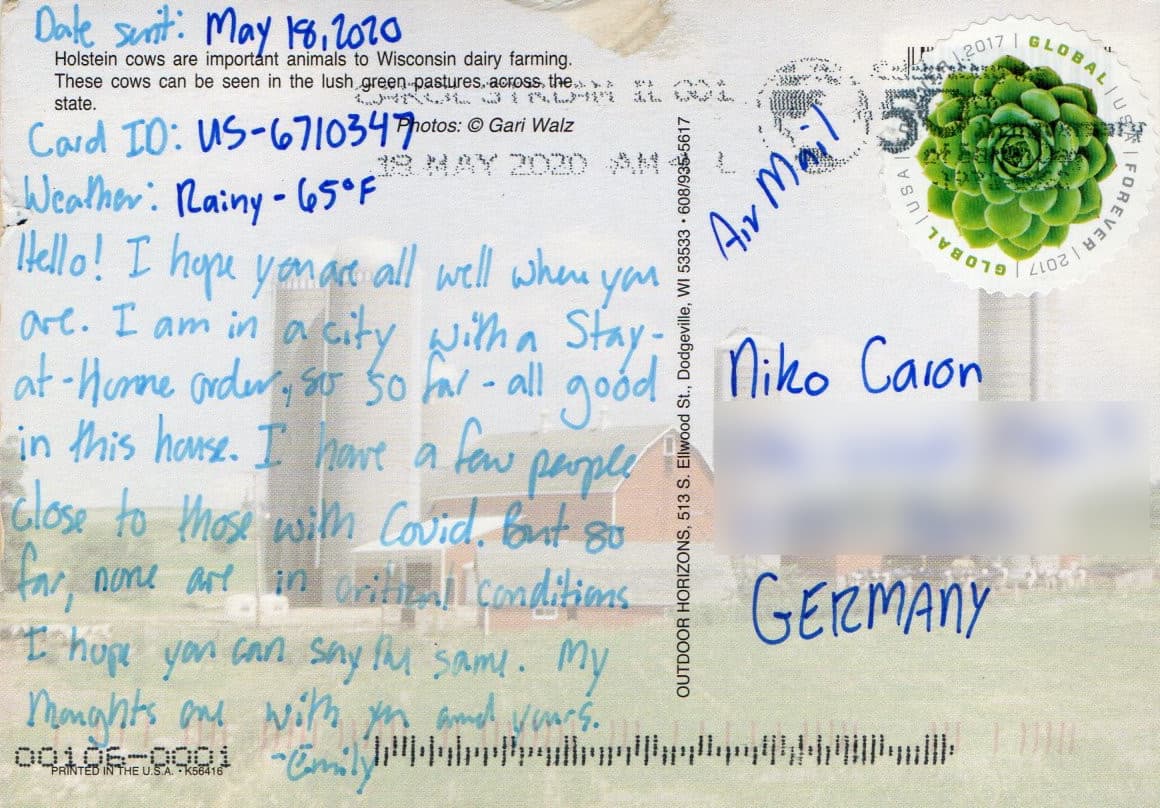 Date sent: May 18, 2020
Holstein cows are important animals to Wisconsin dairy farming.
These cows can be seen in the lush green pastures across the
state.
Card ID: US-6710347
Photos: © Gari Walz
Weather: Rainy - 65°F
Hello! I hope you are all well where you
are. I am in a city with a Stay-
at-Home order, so so far - all good
in this house. I have a few people
close to those with Covid. But so
far, none are in critical conditions
I hope you can say the same. My
thoughts are with you and yours.
-Emily
00106-0001
PRINTED IN THE U.S.A. • K56416
OUTDOOR HORIZONS, 513 S. Ellwood St., Dodgeville, WI 53533 • 608/935-5617
CAROL STREAM IL 601
19 MAY 2020 AM 4 L
Air Mail
GLOBAL | USA | FOREVER | 2017 | GLOBAL | USA | 2017
Niko Caron
GERMANY